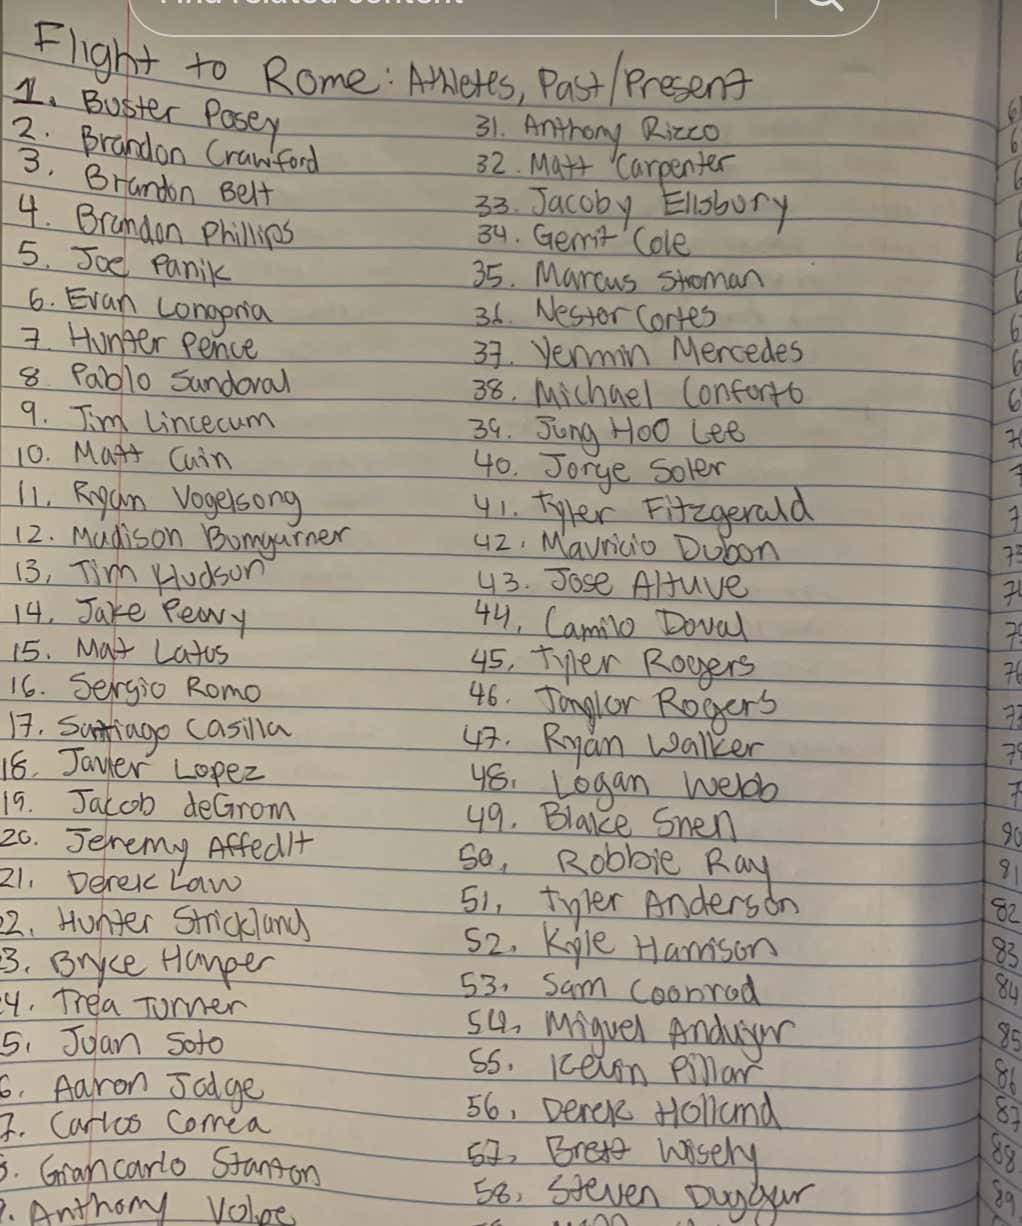 Find related content
Flight to Rome: Athletes, Past/Present
1. Buster Posey
2. Brandon Crawford
3. Brandon Belt
4. Brandon Phillips
5. Joe Panik
6. Evan Longoria
7. Hunter Pence
8. Pablo Sandoval
9. Tim Lincecum
10. Matt Cain
11. Ryan Vogelsong
12. Madison Bumgarner
13, Tim Hudson
14, Jake Peavy
15. Mat Latos
16. Sergio Romo
17. Santiago Casilla
18. Javier Lopez
19. Jacob deGrom
20. Jeremy Affedlt
21, Derek Law
22, Hunter Strickland
3. Bryce Harper
4. Trea Turner
5, Juan Soto
6, Aaron Judge
7. Carlos Correa
8. Giancarlo Stanton
9. Anthony Volpe
31. Anthony Rizzo
32. Matt Carpenter
33. Jacoby Ellsbury
34. Gerrit Cole
35. Marcus Stroman
36. Nestor Cortes
37. Yermin Mercedes
38. Michael Conforto
39. Jung Hoo Lee
40. Jorge Soler
41. Tyler Fitzgerald
42. Mauricio Dubon
43. Jose Altuve
44, Camilo Doval
45, Tyler Rogers
46. Taylor Rogers
47. Ryan Walker
48, Logan Webb
49. Blake Snell
50, Robbie Ray
51, Tyler Anderson
52. Kyle Harrison
53, Sam Coonrod
54, Miguel Andujar
55. Kevin Pillar
56, Derek Holland
57, Brett Wisely
58, Steven Duggar
73
76
77
81
82
83
84
85
86
87
88
89